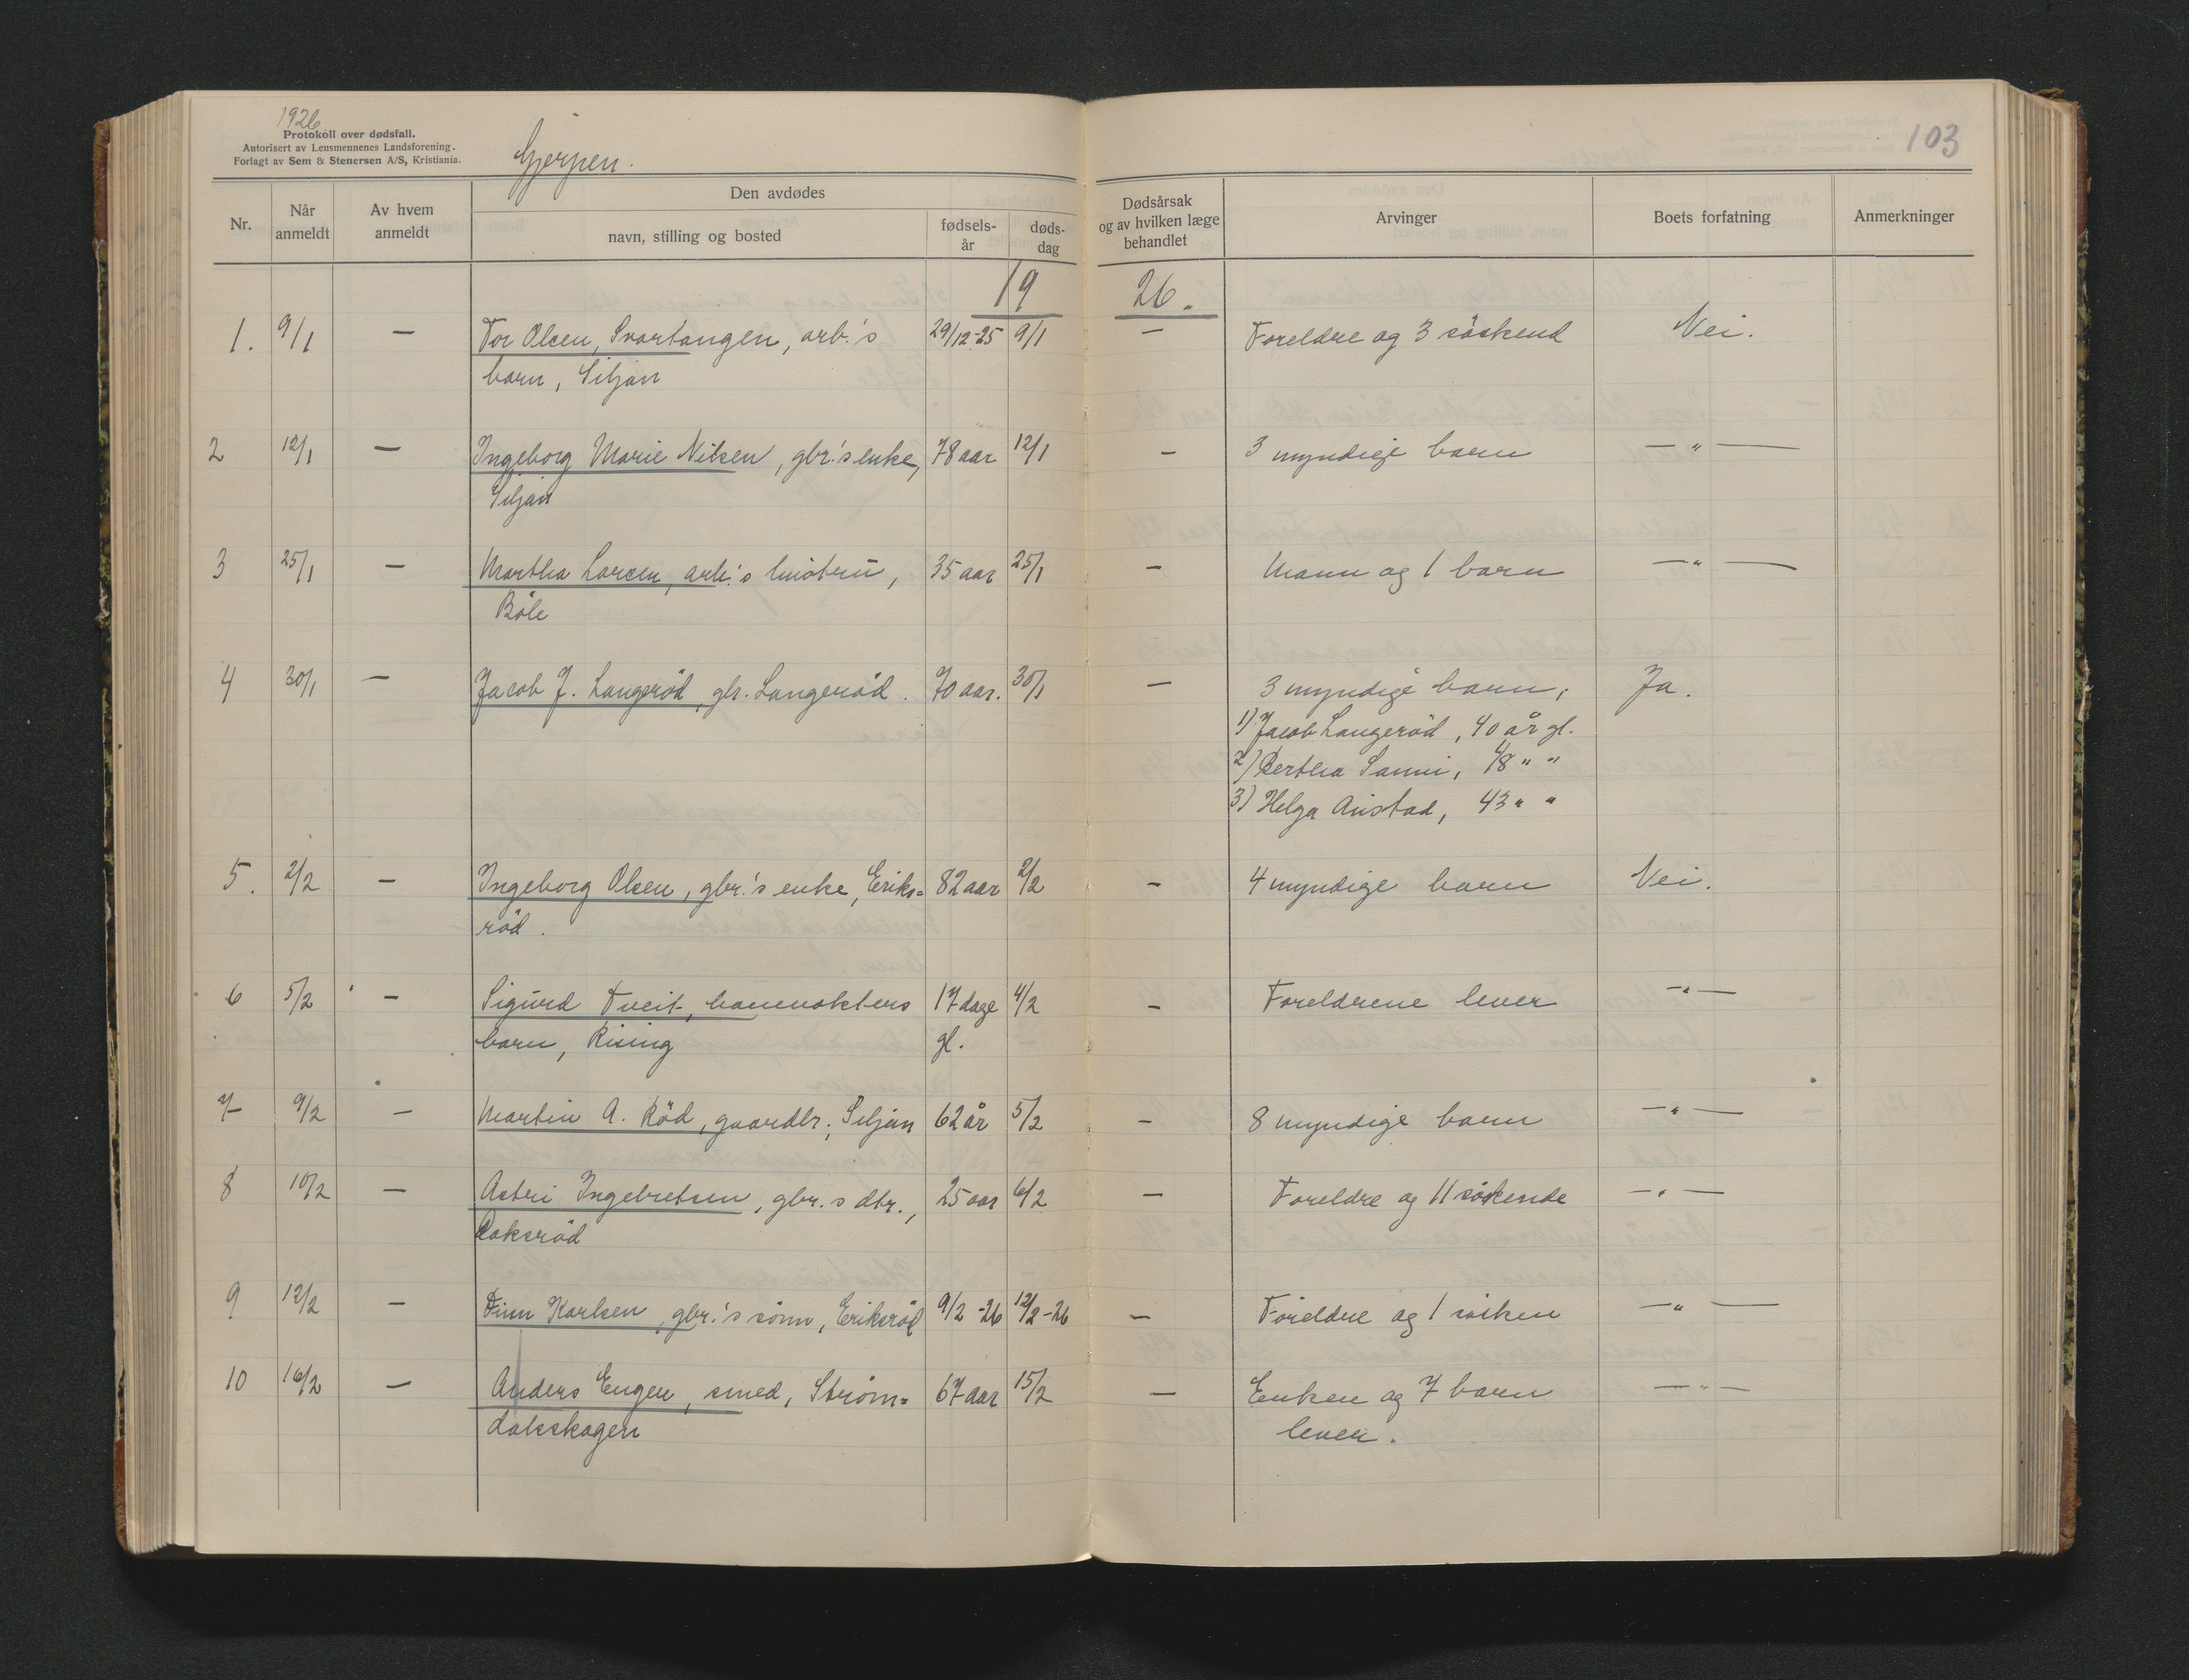 1926
Protokoll over dødsfall.
Autorisert av Lensmennenes Landsforening.
Forlagt av Sem & Stenersen A/S, Kristiania.
Gjerpen.
103
Nr.
Når anmeldt
Av hvem anmeldt
Den avdødes
navn, stilling og bosted
fødsels-år
døds-dag
Dødsårsak og av hvilken læge behandlet
Arvinger
Boets forfatning
Anmerkninger
19 26.
1. 9/1 — Tor Olsen, Svartangen, arb.'s 29/12-25 9/1 — Foreldre og 3 söskend Nei.
barn, Siljan
2 12/1 — Ingeborg Marie Nilsen, gbr.'s enke, 78 aar 12/1 — 3 myndige barn — " —
Siljan
3 25/1 — Martha Larsen, arb.'s hústrú, 35 aar 25/1 — Mann og 1 barn — " —
Böle
4 30/1 — Jacob J. Langeröd, gbr. Langeröd. 70 aar. 30/1 — 3 myndige barn; Ja.
1) Jacob Langeröd, 40 år gl.
2) Bertha Sanni, 48 " "
3) Helga Aústad, 43 " "
5. 2/2 — Ingeborg Olsen, gbr.'s enke, Eriks= 82 aar 2/2 — 4 myndige barn Nei.
röd.
6 5/2 — Sigurd Tveit, banevokters 17 dage 4/2 — Foreldrene lever — " —
barn, Rising gl.
7 9/2 — Martin A. Röd, gaardbr., Siljan 62 år 5/2 — 8 myndige barn — " —
8 10/2 — Astri Ingebretsen, gbr.s dtr., 25 aar 6/2 — Foreldre og 11 söskende — " —
Roksröd
9 12/2 — Finn Karlsen, gbr.'s sönn, Eriksröd 9/2-26 12/2-26 — Foreldre og 1 sösken — " —
10 16/2 — Anders Engen, smed, Ström= 67 aar 15/2 — Enken og 7 barn — " —
dalsskogen lever.